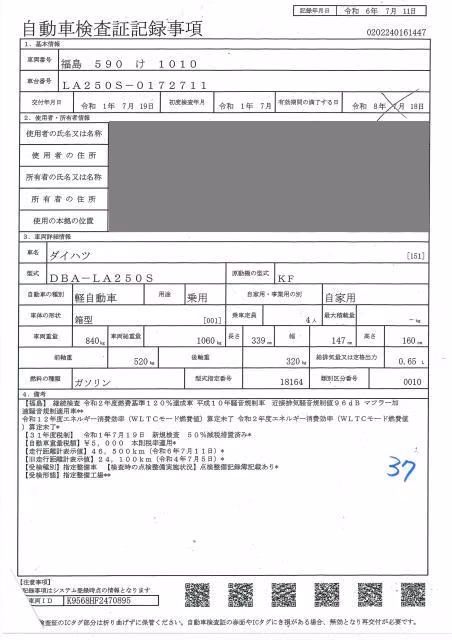 記録年月日 令和 6年 7月 11日
自動車検査証記録事項
0202240161447
1. 基本情報
車両番号 福島 590 け 1010
車台番号 LA250S-0172711
交付年月日 令和 1年 7月 19日 初度検査年月 令和 1年 7月 有効期間の満了する日 令和 8年 7月 18日
2. 使用者・所有者情報
使用者の氏名又は名称
使用者の住所
所有者の氏名又は名称
所有者の住所
使用の本拠の位置
3. 車両詳細情報
車名 ダイハツ [151]
型式 DBA-LA250S 原動機の型式 KF
自動車の種別 軽自動車 用途 乗用 自家用・事業用の別 自家用
車体の形状 箱型 [001] 乗車定員 4人 最大積載量 -kg
車両重量 840kg 車両総重量 1060kg 長さ 339cm 幅 147cm 高さ 160cm
前軸重 520kg 後軸重 320kg 総排気量又は定格出力 0.65 L
燃料の種類 ガソリン 型式指定番号 18164 類別区分番号 0010
4. 備考
【福島】 継続検査 令和2年度燃費基準120%達成車 平成10年騒音規制車 近接排気騒音規制値96dB マフラー加
速騒音規制適用車**
令和12年度エネルギー消費効率(WLTCモード燃費値)算定未了 令和2年度エネルギー消費効率(WLTCモード燃費値
)算定未了*
【31年度税制】 令和1年7月19日 新規検査 50%減税措置済み*
【自動車重量税額】¥5,000 本則税率適用*
【走行距離計表示値】46,500km(令和6年7月11日)*
【旧走行距離計表示値】24,100km(令和4年7月5日)*
【受検種別】指定整備車 【検査時の点検整備実施状況】点検整備記録簿記載あり*
【受検形態】指定整備工場**
37
【注意事項】
記録事項はシステム登録時点の情報となります
車両ID K9568HF2470895
検査証のICタグ部分は折り曲げずに保管ください。自動車検査証の券面やICタグに き損がある場合、無効となり再交付が必要です。